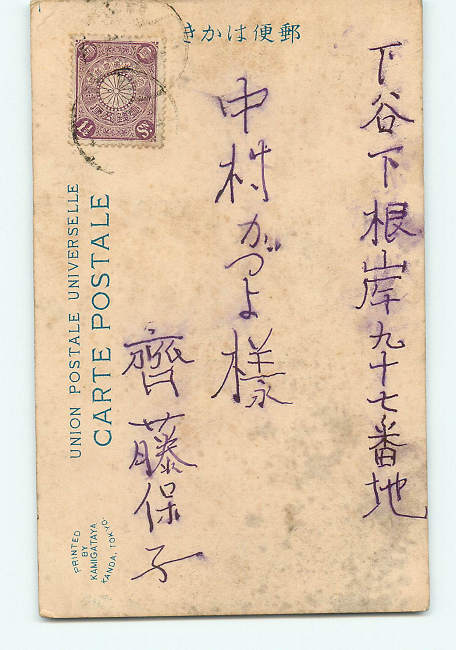 郵便はかき
下谷下根岸九十七番地
中村かつよ様
齊藤保子
UNION POSTALE UNIVERSELLE
CARTE POSTALE
PRINTED
BY
KAMIGATAYA
KANDA, TOKYO.